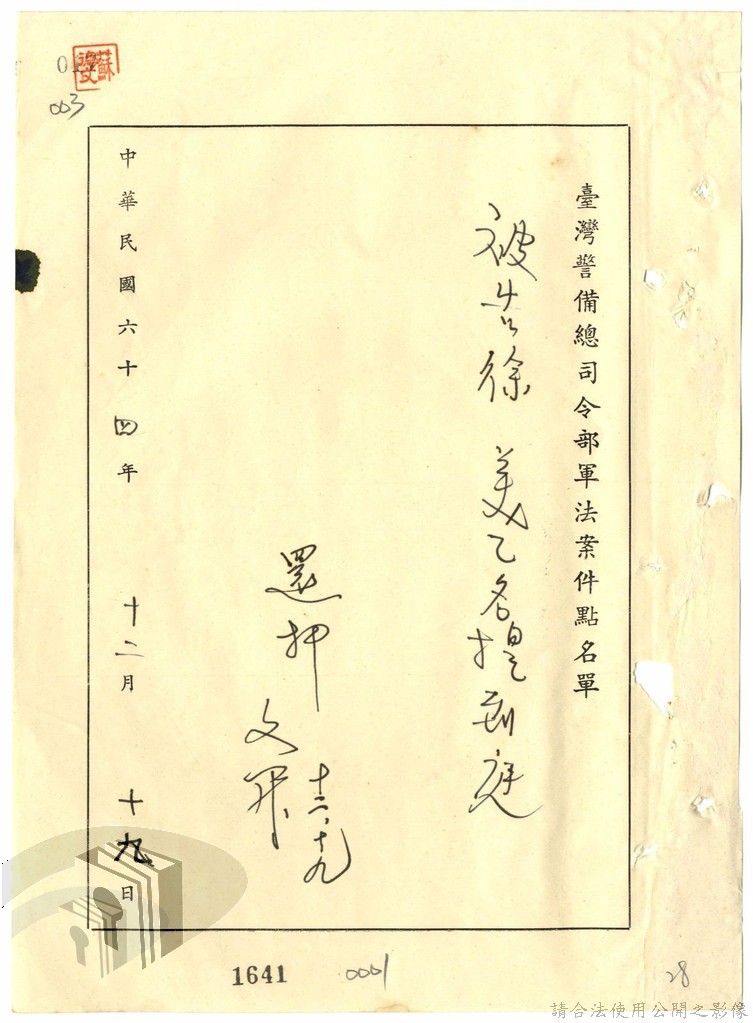 003
蘇
臺灣警備總司令部軍法案件點名單
被告徐 美乙名提到庭
還押
文
十二、十九
中華民國六十四年 十二月 十九日
1641
0001
28
請合法使用公開之影像